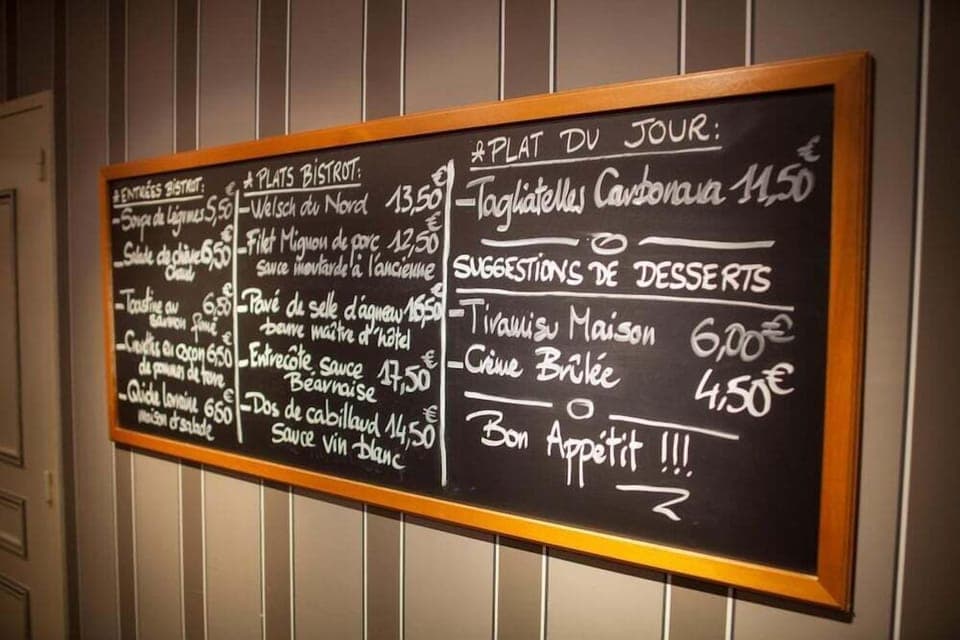 * ENTRÉES BISTROT:
- Soupe de légumes 5,50€
- Salade de chèvre 6,50€
chaud
- Toastine au 6,50€
saumon fumé
de pommes de terre
- Quiche lorraine 6,50€
maison et salade
* PLATS BISTROT:
- Welsch du Nord 13,50€
- Filet Mignon de porc 12,50€
sauce moutarde à l'ancienne
- Pavé de selle d'agneau 16,50€
beurre maître d'hôtel
- Entrecôte sauce 17,50€
Béarnaise
- Dos de cabillaud 14,50€
sauce vin blanc
* PLAT DU JOUR:
- Tagliatelles Carbonara 11,50€
SUGGESTIONS DE DESSERTS
- Tiramisu Maison 6,00€
- Crème Brûlée 4,50€
Bon Appétit !!!